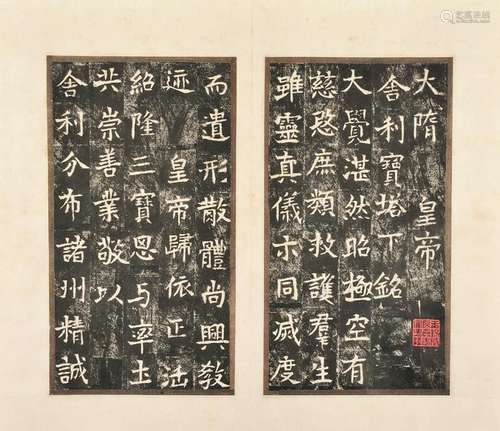 大隋 皇帝
舍利寶塔下銘
大覺湛然昭極空有
慈愍庶類救護羣生
雖靈真儀示同滅度
而遺形散體尚興教
迹 皇帝歸依正法
紹隆三寶思与率土
共崇善業敬以
舍利分布諸州精誠